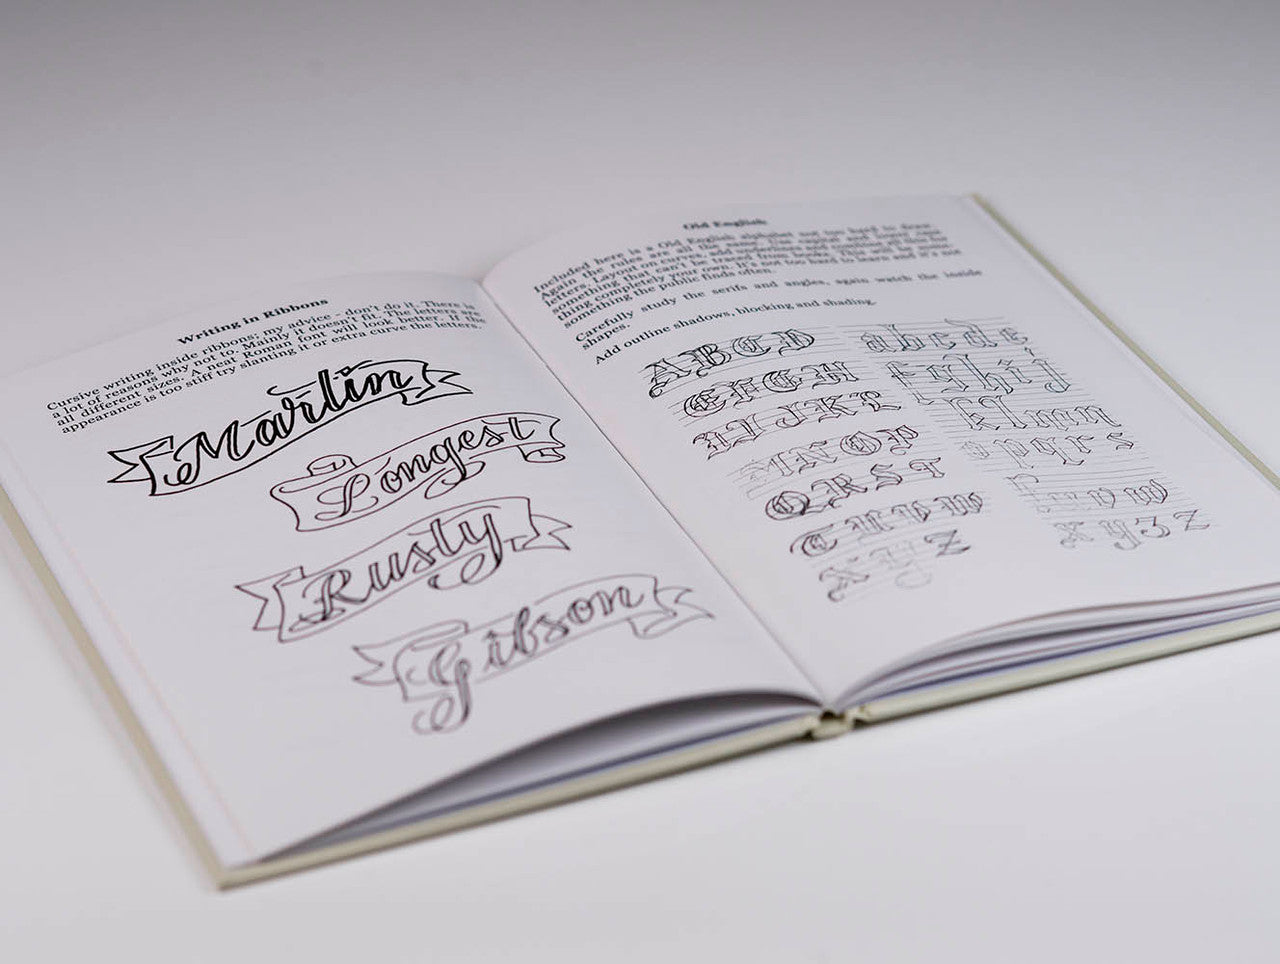 Writing in Ribbons
Cursive writing inside ribbons: my advice - don't do it. There is
a lot of reasons why not to. Mainly it doesn't fit. The letters are
all different sizes. A neat Roman font will look better. If the
appearance is too stiff try slanting it or extra curve the letters.
Marlin
Longest
Rusty
Gibson
Old English
Included here is a Old English alphabet not too hard to draw.
Again the rules are all the same. Use upper and lower case
letters. Layout on curves, add underlines and outlines all this for
something that can't be traced from books. This will be some-
thing completely your own. It's not too hard to learn and it's not
something the public finds often.
Carefully study the serifs and angles, again watch the inside
shapes.
Add outline shadows, blocking and shading.
A B C D
E F G H
I J K L
M N O P
Q R S T
U V W
X Y Z
a b c d e
f g h i j
k l m n
o p q r s
t u v w
x y z z